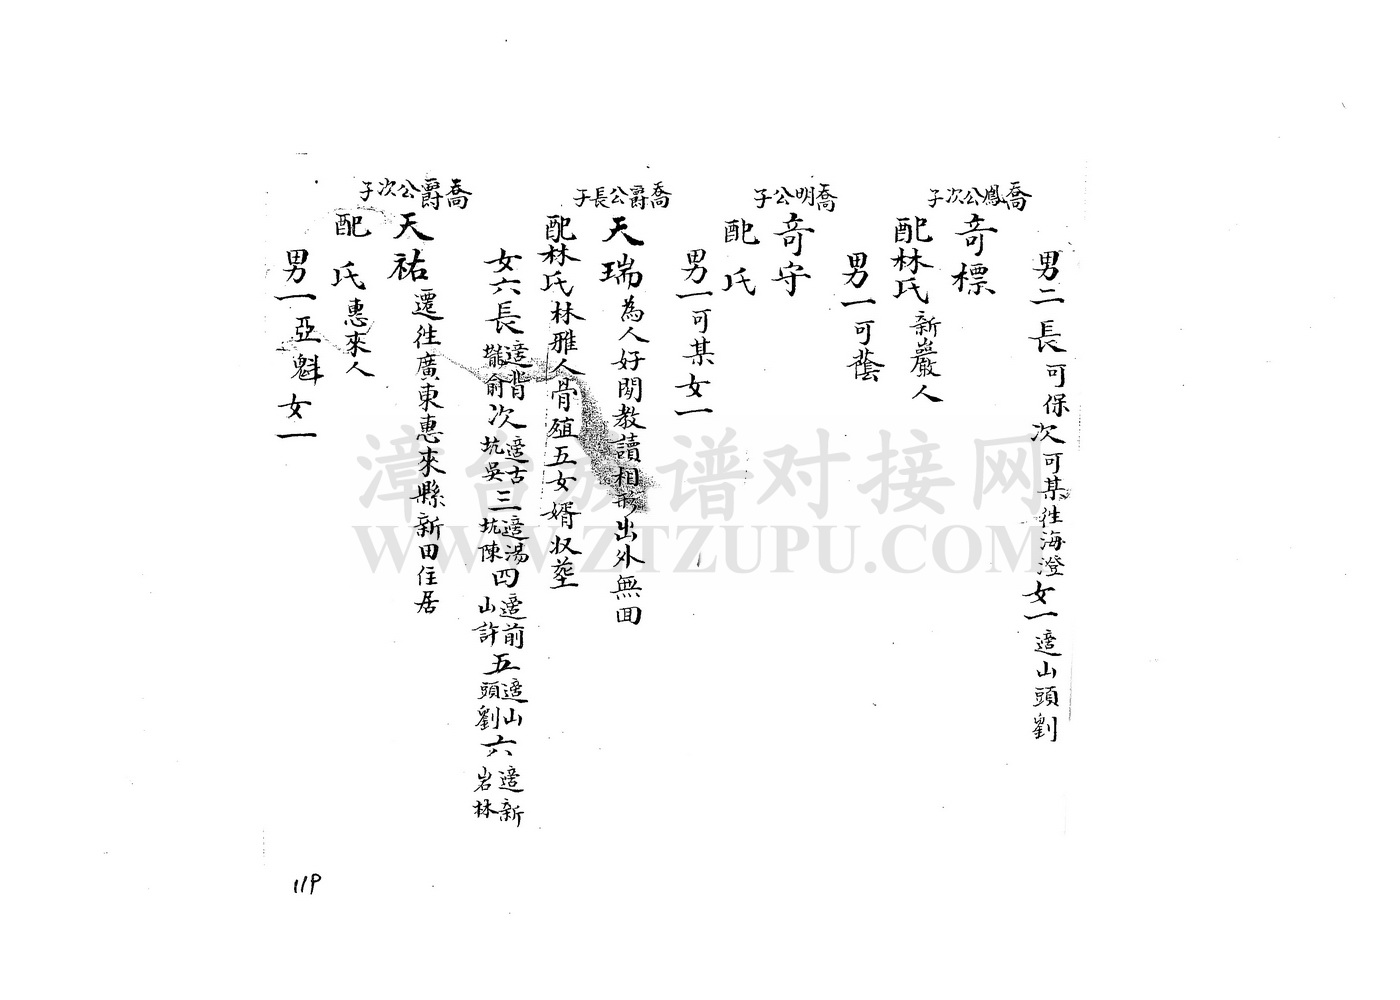 男二長可保次可某往海澄女一適山頭劉
喬鳳公次子
奇標
配林氏新巖人
男一可蔭
喬明公子
奇守
配氏
男一可某女一
喬爵公長子
天瑞為人好閑教讀相形出外無回
配林氏林雅人骨殖五女婿収塟
女六長適背壠俞次適古坑吳三適湯坑陳四適前山許五適山頭劉六適新岩林
喬爵公次子
天祐遷往廣東惠來縣新田住居
配氏惠來人
男一亞魁女一
119
漳台族谱对接网
WWW.ZTZUPU.COM